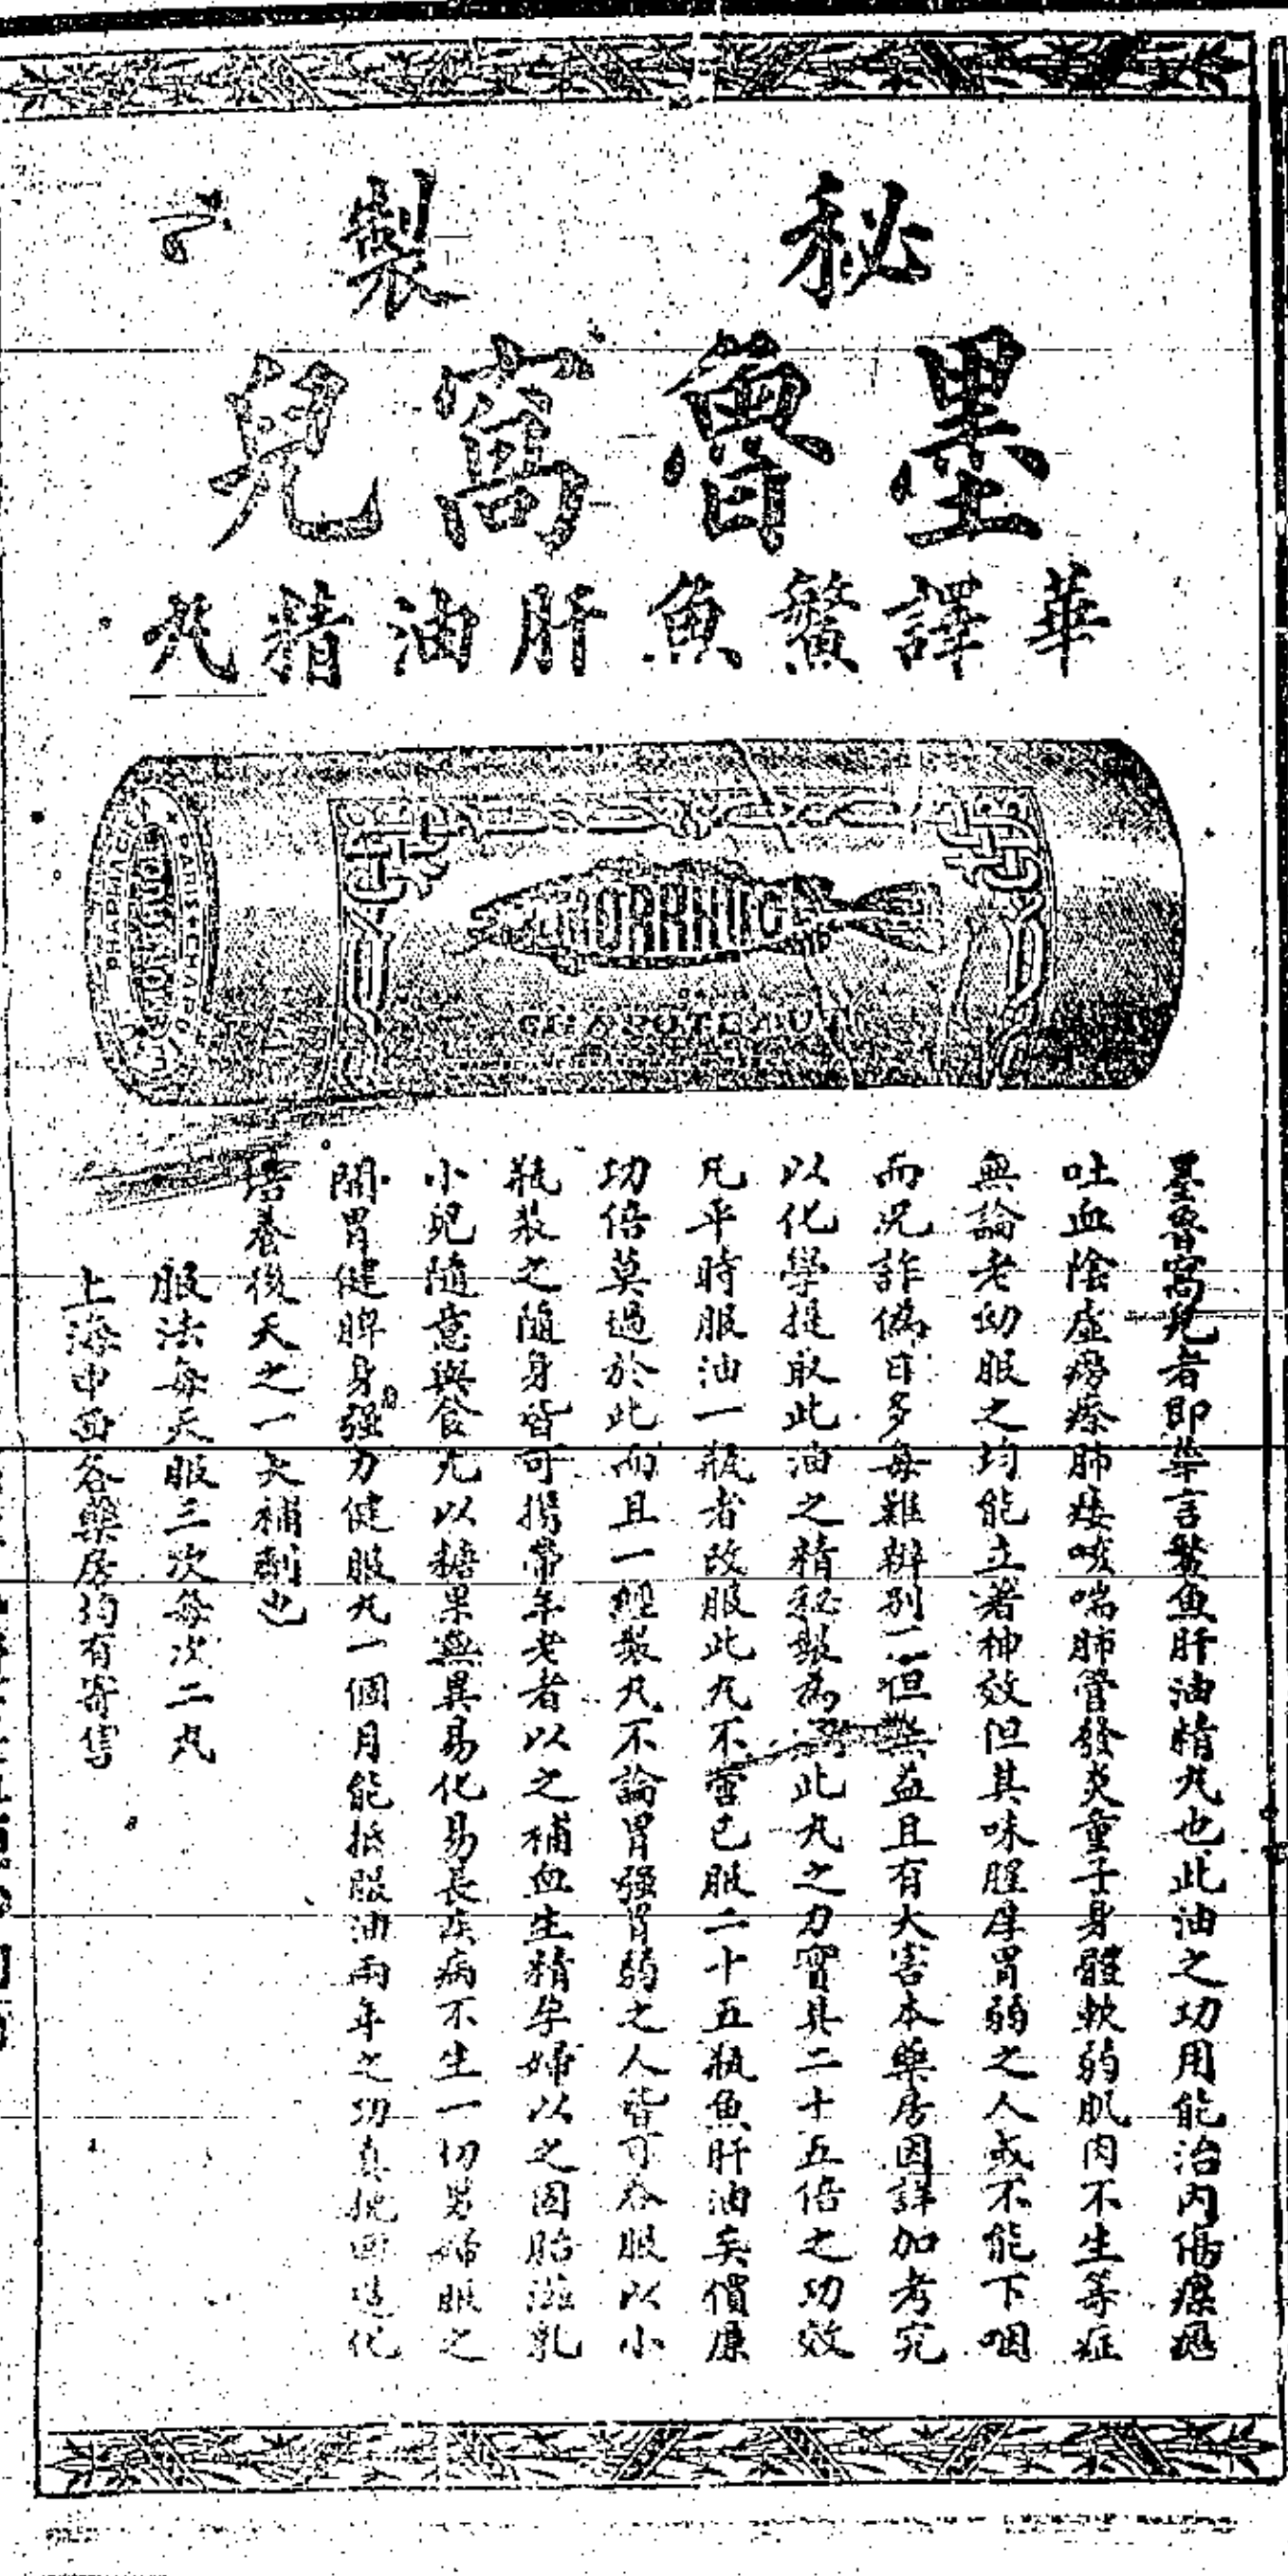 秘製
墨魯窩兒
華譯鰵魚肝油精丸
MORRHUOL
CHAPOTEAUT
墨魯窩兒者即華言鰵魚肝油精丸也此油之功用能治內傷瘰癧
吐血陰虛癆瘵肺痿咳喘肺管發炎童子身體軟弱肌肉不生等症
無論老幼服之均能立著神效但其味腥厚胃弱之人或不能下咽
而況詐偽日多每難辦別不但無益且有大害本藥房因詳加考究
以化學提取此油之精秘製為此丸之力實具二十五倍之功效
凡平時服油一瓶者改服此丸不啻已服二十五瓶魚肝油矣價廉
功倍莫過於此而且一經製丸不論胃強胃弱之人皆可吞服以小
瓶裝之隨身皆可攜帶年老者以之補血生精孕婦以之固胎滋乳
小兒隨意與食尤以糖果無異易化易長疾病不生一切男婦服之
開胃健脾身強力健服丸一個月能抵服油兩年之功真挽回造化
培養後天之一大補劑也
服法每天服三次每次二丸
上海中西各藥房均有寄售